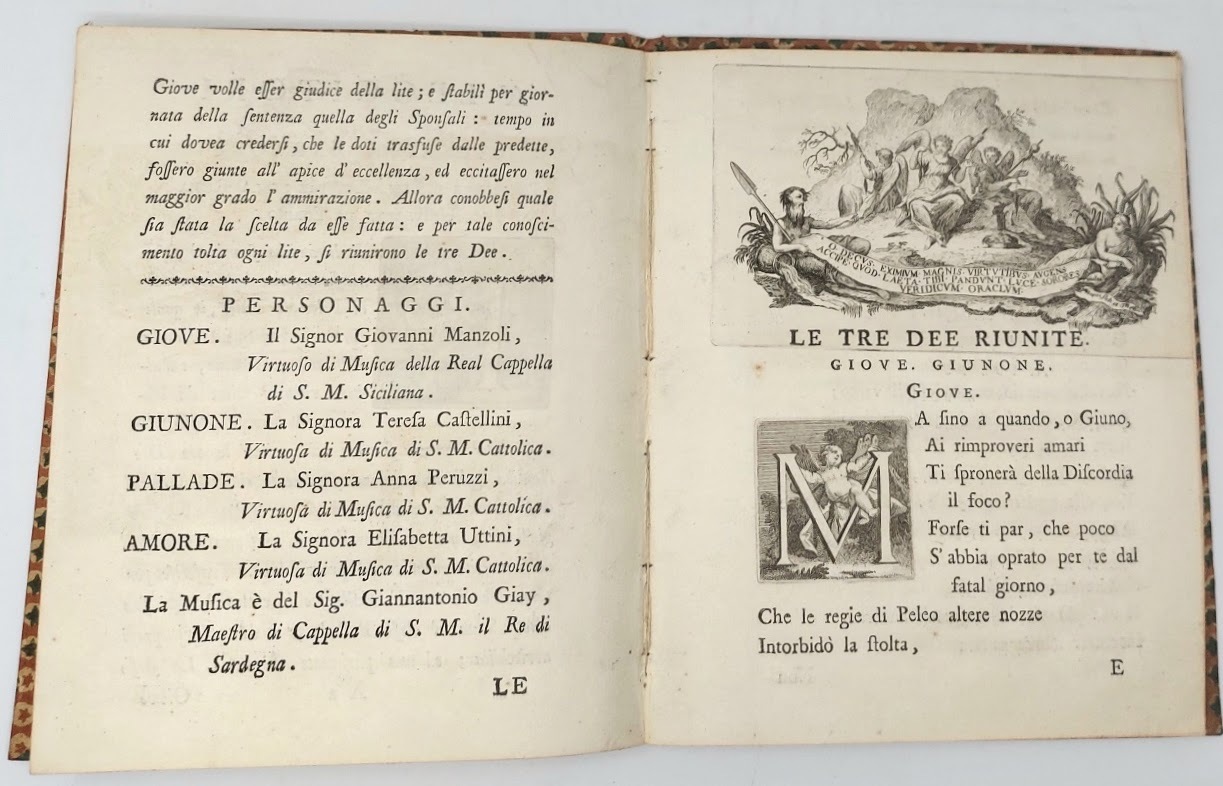 Giove volle eſſer giudice della lite; e ſtabilì per gior-
nata della ſentenza quella degli Sponſali: tempo in
cui dovea crederſi, che le doti trasfuſe dalle predette,
foſſero giunte all' apice d' eccellenza, ed eccitaſſero nel
maggior grado l' ammirazione. Allora conobbeſi quale
ſia ſtata la ſcelta da eſſe fatta: e per tale conoſci-
mento tolta ogni lite, ſi riunirono le tre Dee.
PERSONAGGI.
GIOVE. Il Signor Giovanni Manzoli,
Virtuoſo di Muſica della Real Cappella
di S. M. Siciliana.
GIUNONE. La Signora Tereſa Caſtellini,
Virtuoſa di Muſica di S. M. Cattolica.
PALLADE. La Signora Anna Peruzzi,
Virtuoſa di Muſica di S. M. Cattolica.
AMORE. La Signora Eliſabetta Uttini,
Virtuoſa di Muſica di S. M. Cattolica.
La Muſica è del Sig. Giannantonio Giay,
Maeſtro di Cappella di S. M. il Re di
Sardegna.
LE
O DECUS EXIMIUM MAGNIS VIRTUTIBUS AUGENS
ACCIPE QUOD LAETA TIBI PANDUNT LUCE SORORES
VERIDICUM ORACLUM
LE TRE DEE RIUNITE.
GIOVE. GIUNONE.
GIOVE.
MA ſino a quando, o Giuno,
Ai rimproveri amari
Ti ſpronerà della Diſcordia
il foco?
Forſe ti par, che poco
S' abbia oprato per te dal
fatal giorno,
Che le regie di Peleo altere nozze
Intorbidò la ſtolta,
E